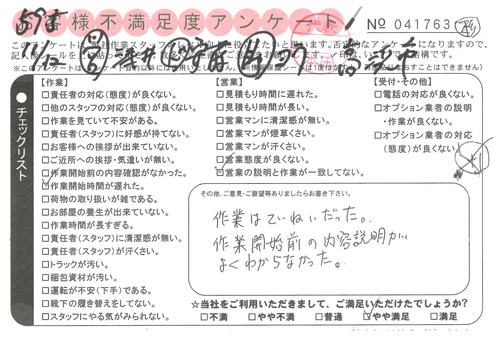 お客様不満足度アンケート
No 041763
【作業】
□責任者の対応(態度)が良くない。
□他のスタッフの対応(態度)が良くない。
□作業を見ていて不安がある。
□責任者(スタッフ)に好感が持てない。
□お客様への挨拶が出来ていない。
□ご近所への挨拶・気遣いが無い。
□作業開始前の内容確認がなかった。
□作業開始時間が遅れた。
□荷物の取り扱いが雑である。
□お部屋の養生が出来ていない。
□作業時間が長すぎる。
□責任者(スタッフ)に清潔感が無い。
□責任者(スタッフ)が汗くさい。
□トラックが汚い。
□梱包資材が汚い。
□運転が不安(下手)である。
□靴下の履き替えをしてない。
□スタッフにやる気がみられない。
チェックリスト
【営業】
□見積もり時間に遅れた。
□見積もり時間が長い。
□営業マンに清潔感が無い。
□営業マンが煙草くさい。
□営業マンが汗くさい。
□営業態度が良くない。
□営業の説明と作業が一致してない。
【受付・その他】
□電話の対応が良くない。
□オプション業者の説明
・作業が良くない。
□オプション業者の対応
(態度)が良くない。
その他、ご意見・ご要望等ありましたらお書き下さい。
作業はていねいだった。
作業開始前の内容説明が
よくわからなかった。
☆当社をご利用いただきまして、ご満足いただけたでしょうか?
□不満 □やや不満 □普通 □やや満足 □満足